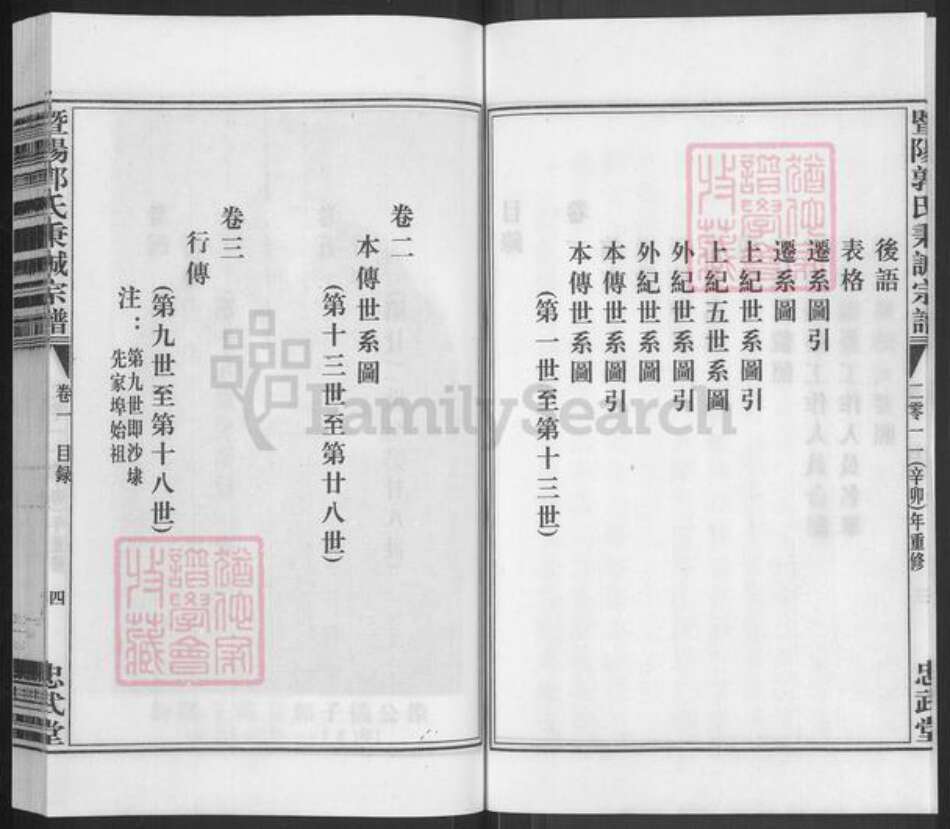 暨陽郭氏秉誠宗譜
二零一一(辛卯)年重修
忠武堂
後語
表格
遷系圖引
遷系圖
上紀世系圖引
上紀五世系圖
外紀世系圖引
外紀世系圖
本傳世系圖引
本傳世系圖
(第一世至第十三世)
卷二
本傳世系圖
(第十三世至第廿八世)
卷三
行傳
(第九世至第十八世)
注：第九世即沙埭
先家埠始祖
暨陽郭氏秉誠宗譜
卷一
目録
四
忠武堂
猶他家
譜學會
收藏
猶他家
譜學會
收藏
FamilySearch